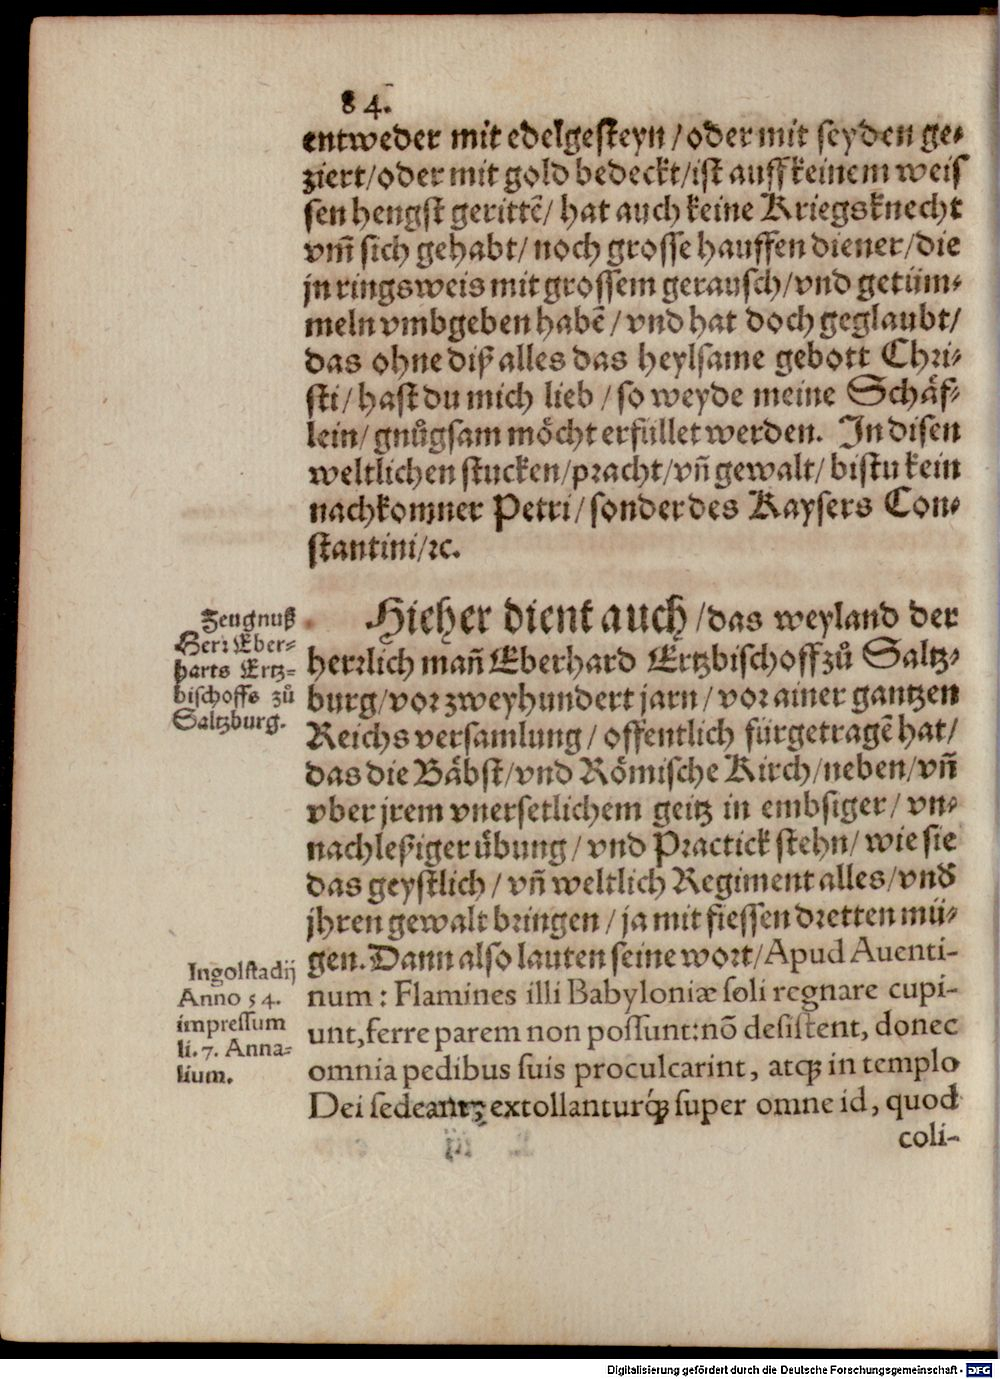 84.
entweder mit edelgesteyn / oder mit seyden ge-
ziert/oder mit gold bedeckt/ist auff keinem weis
sen hengst gerittē/ hat auch keine Kriegsknecht
vm̄ sich gehabt/ noch grosse hauffen diener/die
jn ringsweis mit grossem gerausch/vnd getüm-
meln vmbgeben habē / vnd hat doch geglaubt/
das ohne diß alles das heylsame gebott Chri-
sti/ hast du mich lieb / so weyde meine Schäf-
lein/ gnůgsam möcht erfüllet werden. In disen
weltlichen stucken/pracht/vn̄ gewalt/ bistu kein
nachkomner Petri/ sonder des Kaysers Con-
stantini/ꝛc.
Zeugnuß
Herꝛ Eber-
harts Ertz-
bischoffs zů
Saltzburg.
Hieher dient auch /das weyland der
herꝛlich man̄ Eberhard Ertzbischoff zů Saltz-
burg/vor zweyhundert jarn/ vor ainer gantzen
Reichs versamlung / offentlich fürgetragē hat/
das die Bäbst/vnd Römische Kirch/neben/vn̄
vber jrem vnersetlichem geitz in embsiger/ vn-
nachleßiger übung/ vnd Practick stehn/ wie sie
das geystlich / vn̄ weltlich Regiment alles/vnd
jhren gewalt bringen / ja mit fiessen dretten mü-
gen. Dann also lauten seine wort/Apud Auenti-
num : Flamines illi Babyloniæ soli regnare cupi-
unt,ferre parem non possunt:nō desistent, donec
omnia pedibus suis proculcarint, atq́ꝫ in templo
Dei sedeantꝫ extollanturq́ꝫ super omne id, quod
coli-
Ingolstadij
Anno 54.
impressum
li. 7. Anna-
lium.
Digitalisierung gefördert durch die Deutsche Forschungsgemeinschaft - DFG